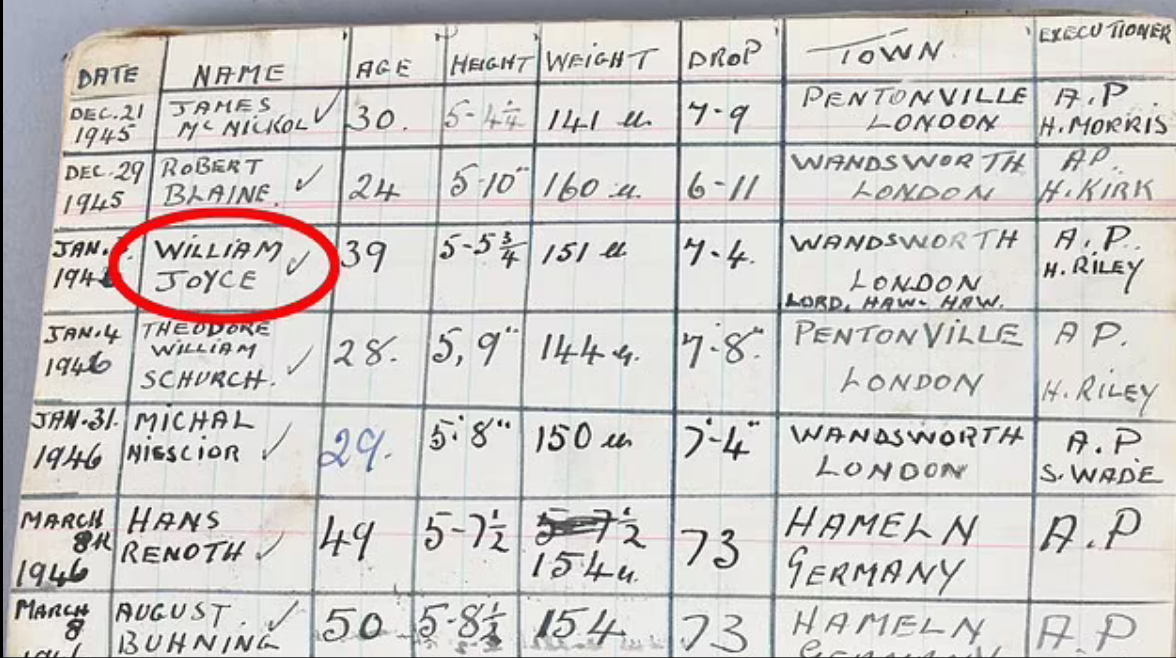 DATE NAME AGE HEIGHT WEIGHT DROP TOWN EXECUTIONER
DEC. 21 JAMES 30. 5-4¼ 141 lb. 7-9 PENTONVILLE A.P.
1945 Mc NICKOL ✓ LONDON H. MORRIS
DEC. 29 ROBERT 24 5-10" 160 lb. 6-11 WANDSWORTH AP.
1945 BLAINE. ✓ LONDON H. KIRK
JAN. WILLIAM 39 5-5¾ 151 lb 7-4. WANDSWORTH A.P.
1946 JOYCE ✓ LONDON H. RILEY
LORD, HAW-HAW.
JAN. 4 THEODORE 28. 5, 9" 144 lb. 7-8" PENTONVILLE A P.
1946 WILLIAM LONDON H. RILEY
SCHURCH. ✓
JAN. 31. MICHAL 29. 5' 8" 150 lb 7'-4" WANDSWORTH A.P
1946 NIESCIOR ✓ LONDON S. WADE
MARCH HANS 49 5-7½ 73 HAMELN A.P
8th RENOTH ✓ 154 lb. GERMANY
1946
MARCH AUGUST. ✓ 50 5-8½ 154 73 HAMELN A.P
8 BUHNING GERMANY
1946